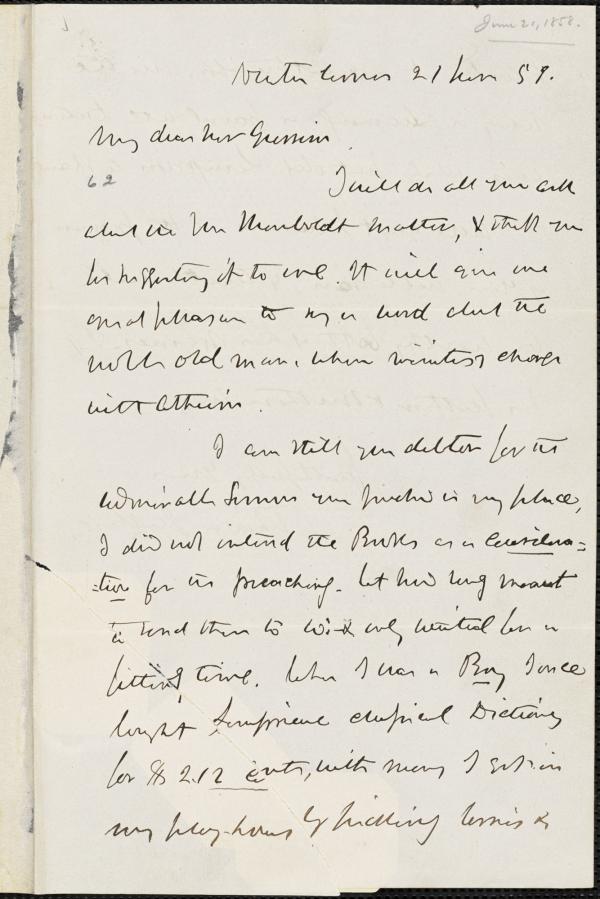 June 21, 1858.
21 June 58.
My dear Mr Garrison
62
I will do all you ask
about the Von Humboldt matter, & thank you
for suggesting it to me. It will give me
great pleasure to say a word about the
noble old man, whom ministers charge
with Atheism.
I am still your debtor for the
admirable Sermon you preached in my place,
I did not intend the Books as a Considera=
=tion for the preaching. but had long meant
to send them to &  only waited for a
fitting time. When I was a Boy I once
bought Lempriere classical Dictionary
for $ 2.12 cents, with money I got in
my play-hours by picking berries &